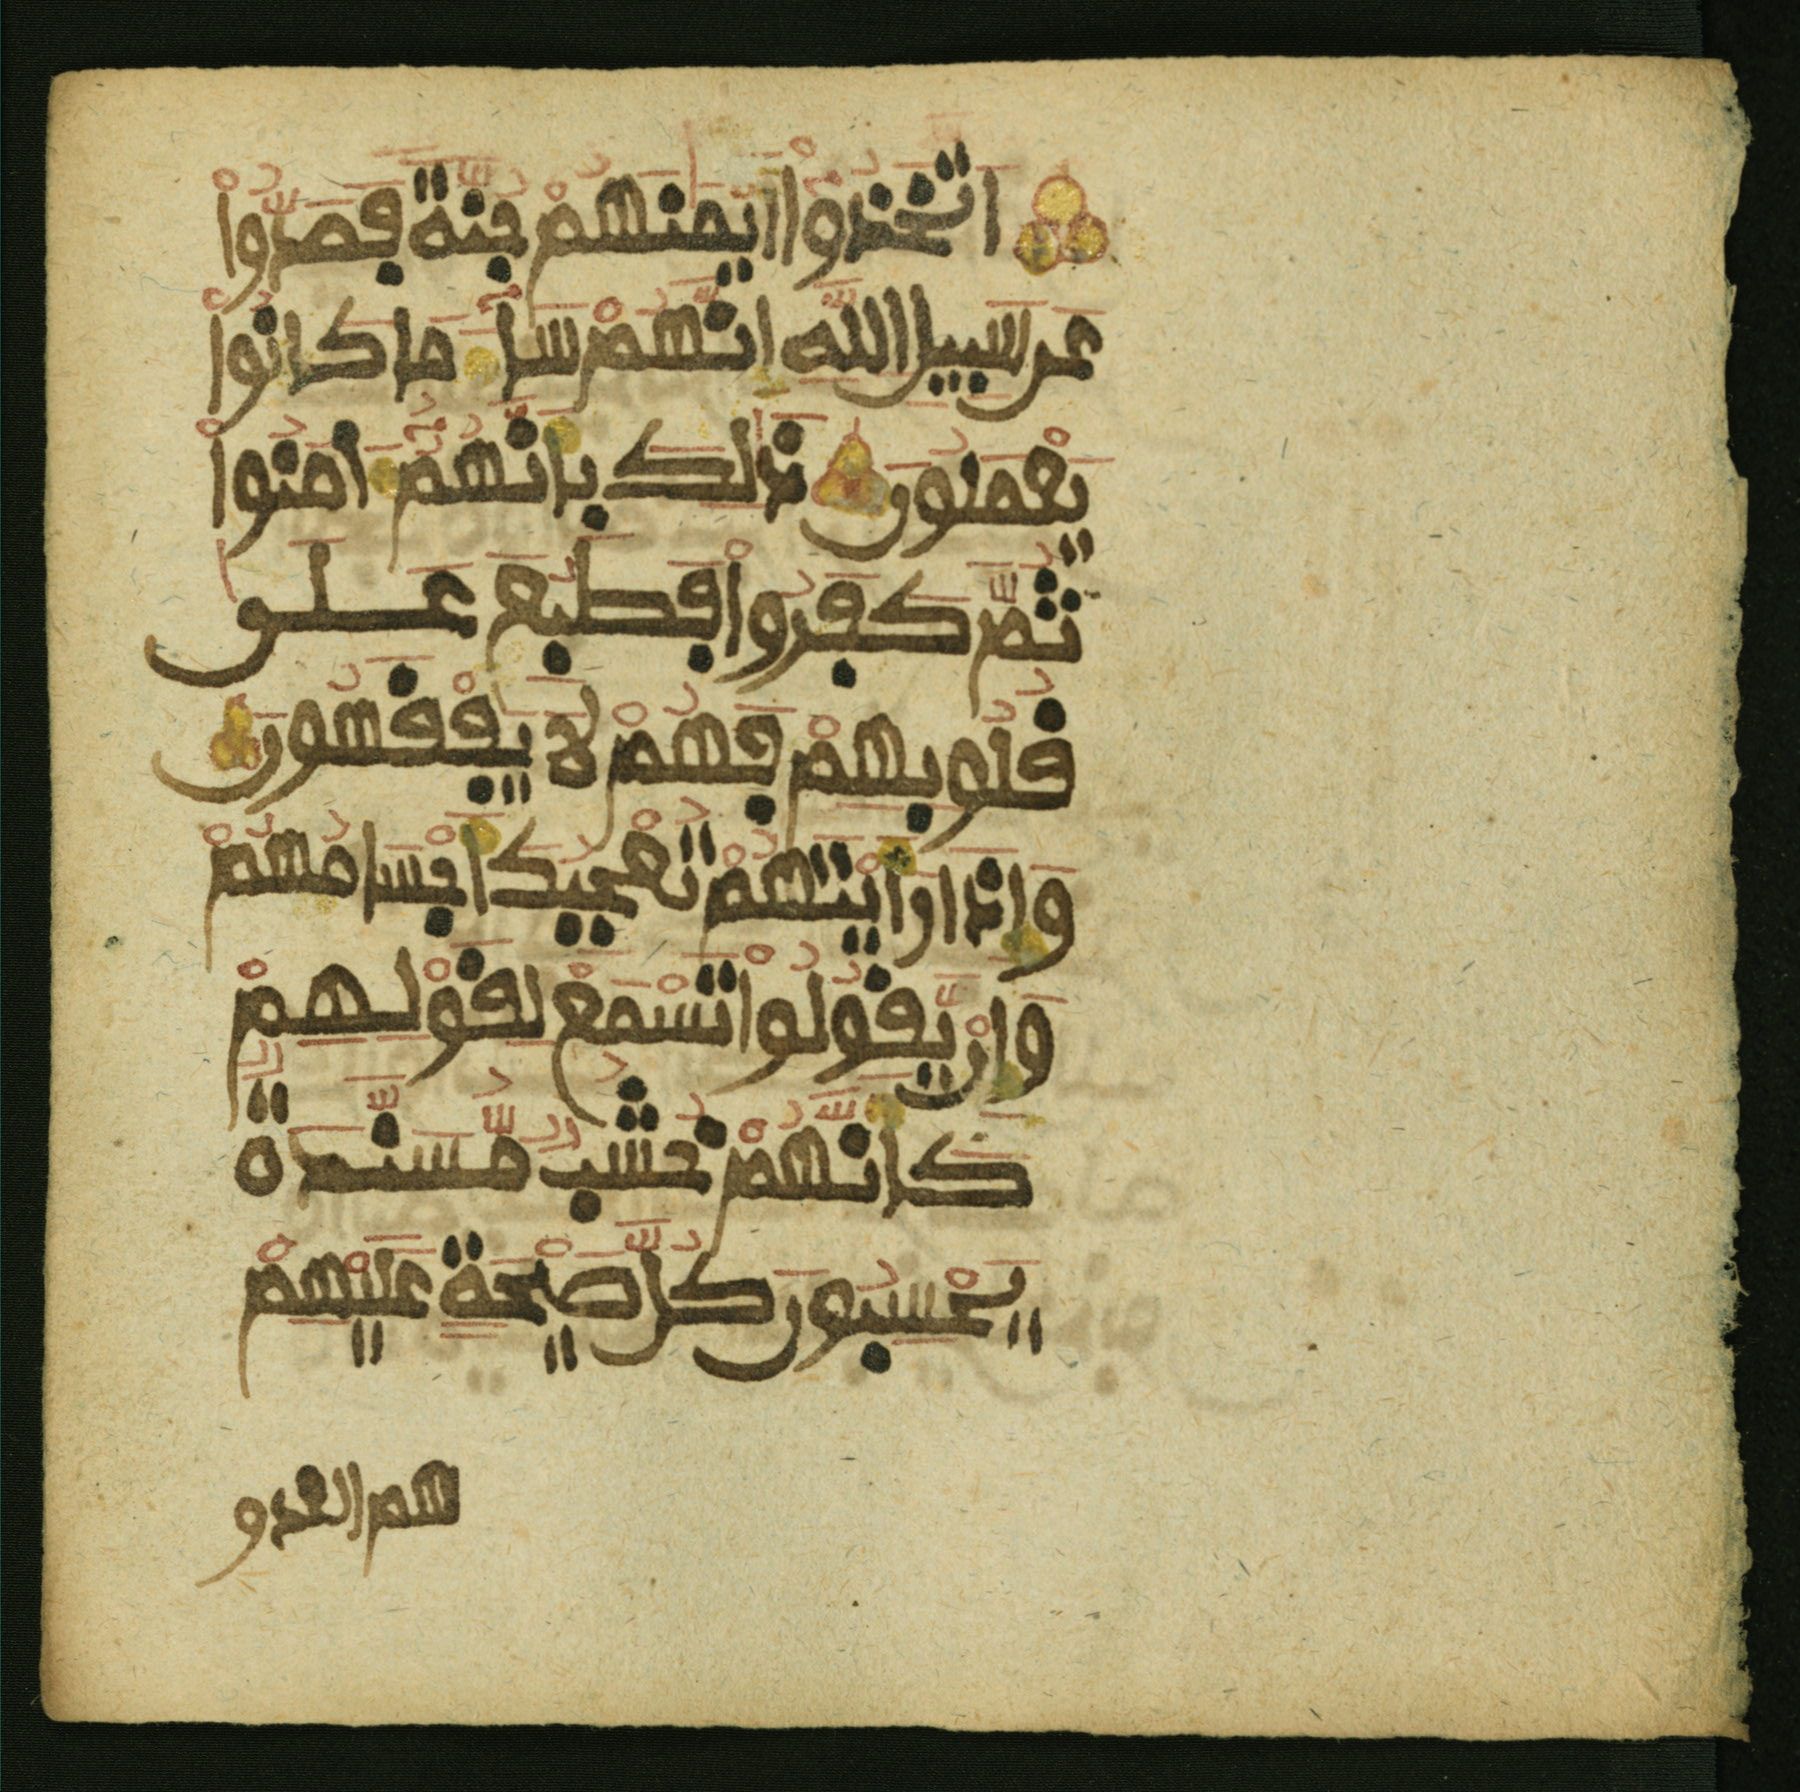 اتَّخَذُوٓاْ أَيْمَٰنَهُمْ جُنَّةً فَصَدُّواْ
عَن سَبِيلِ اللَّهِ إِنَّهُمْ سَآءَ مَا كَانُواْ
يَعْمَلُونَ ذَٰلِكَ بِأَنَّهُمْ ءَامَنُواْ
ثُمَّ كَفَرُواْ فَطُبِعَ عَلَىٰ
قُلُوبِهِمْ فَهُمْ لَا يَفْقَهُونَ
وَإِذَا رَأَيْتَهُمْ تُعْجِبُكَ أَجْسَامُهُمْ
وَإِنْ يَّقُولُواْ تَسْمَعْ لِقَوْلِهِمْ
كَأَنَّهُمْ خُشُبٌ مُّسَنَّدَةٌ
يَحْسِبُونَ كُلَّ صَيْحَةٍ عَلَيْهِمْ
هم العدو